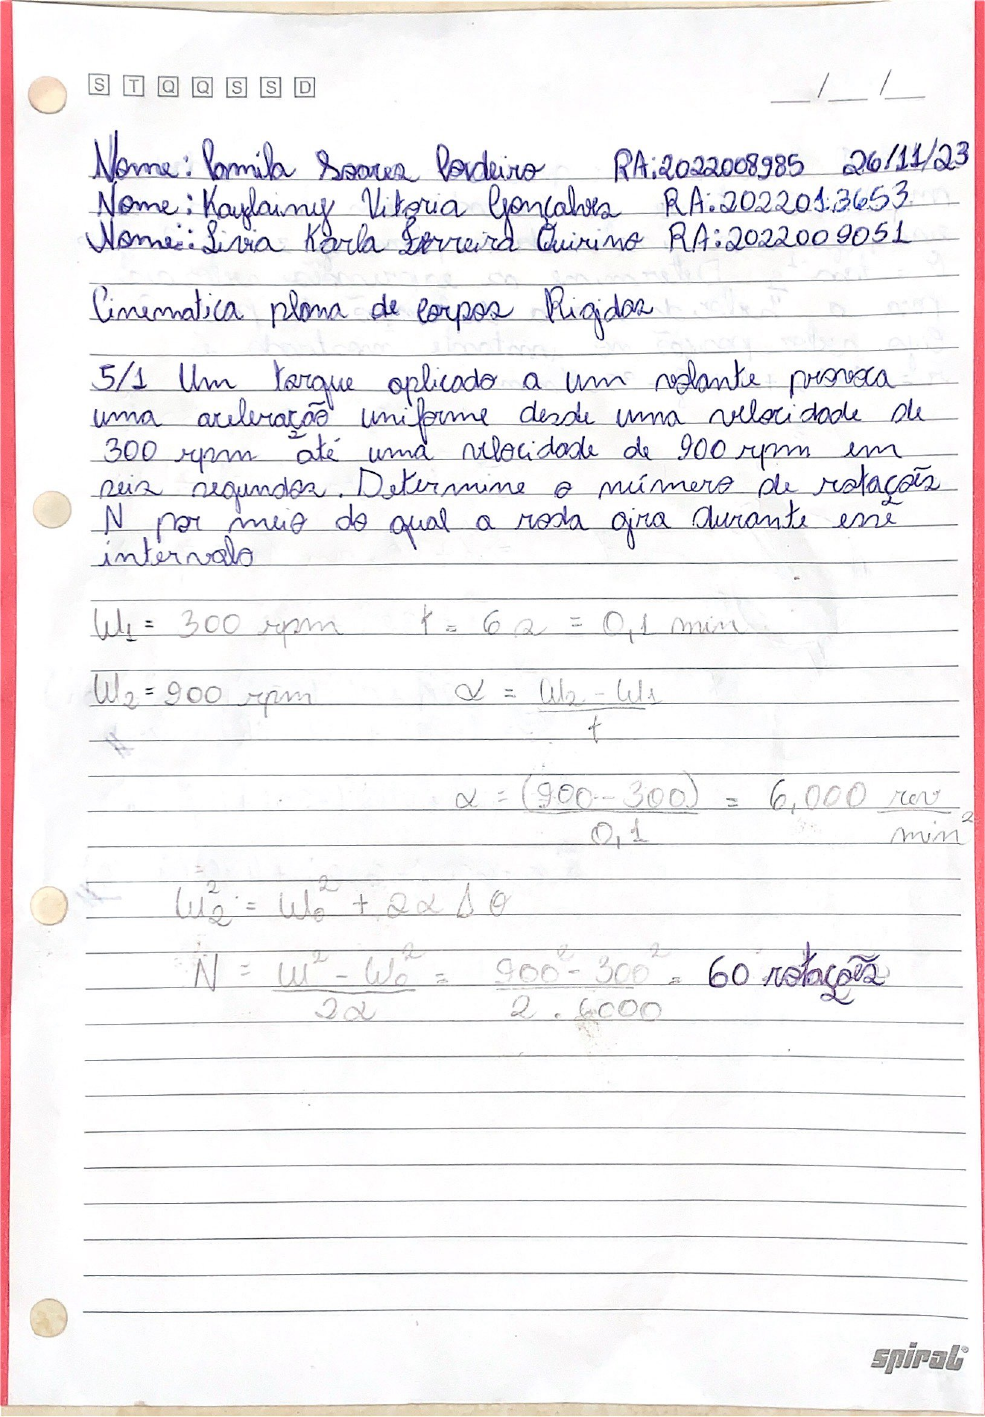 S T Q Q S S D
__/__/__
Nome: Camila Soares Cordeiro RA:2022008985 26/11/23
Nome: Kaylainny Vitoria Gonçalves RA:2022013653
Nome: Livia Karla Ferreira Quirino RA:2022009051
Cinematica plana de Corpos Rigidos
5/1 Um torque aplicado a um volante provoca
uma aceleração uniforme desde uma velocidade de
300 rpm até uma velocidade de 900 rpm em
seis segundos. Determine o número de rotações
N por meio do qual a roda gira durante esse
intervalo
W₁ = 300 rpm t = 6 s = 0,1 min
W₂ = 900 rpm α = W₂ - W₁ / t
α = (900 - 300) / 0,1 = 6,000 rev / min²
W₂² = W₀² + 2α Δθ
N = W² - W₀² / 2α = 900² - 300² / 2 . 6000 = 60 rotações
spiral